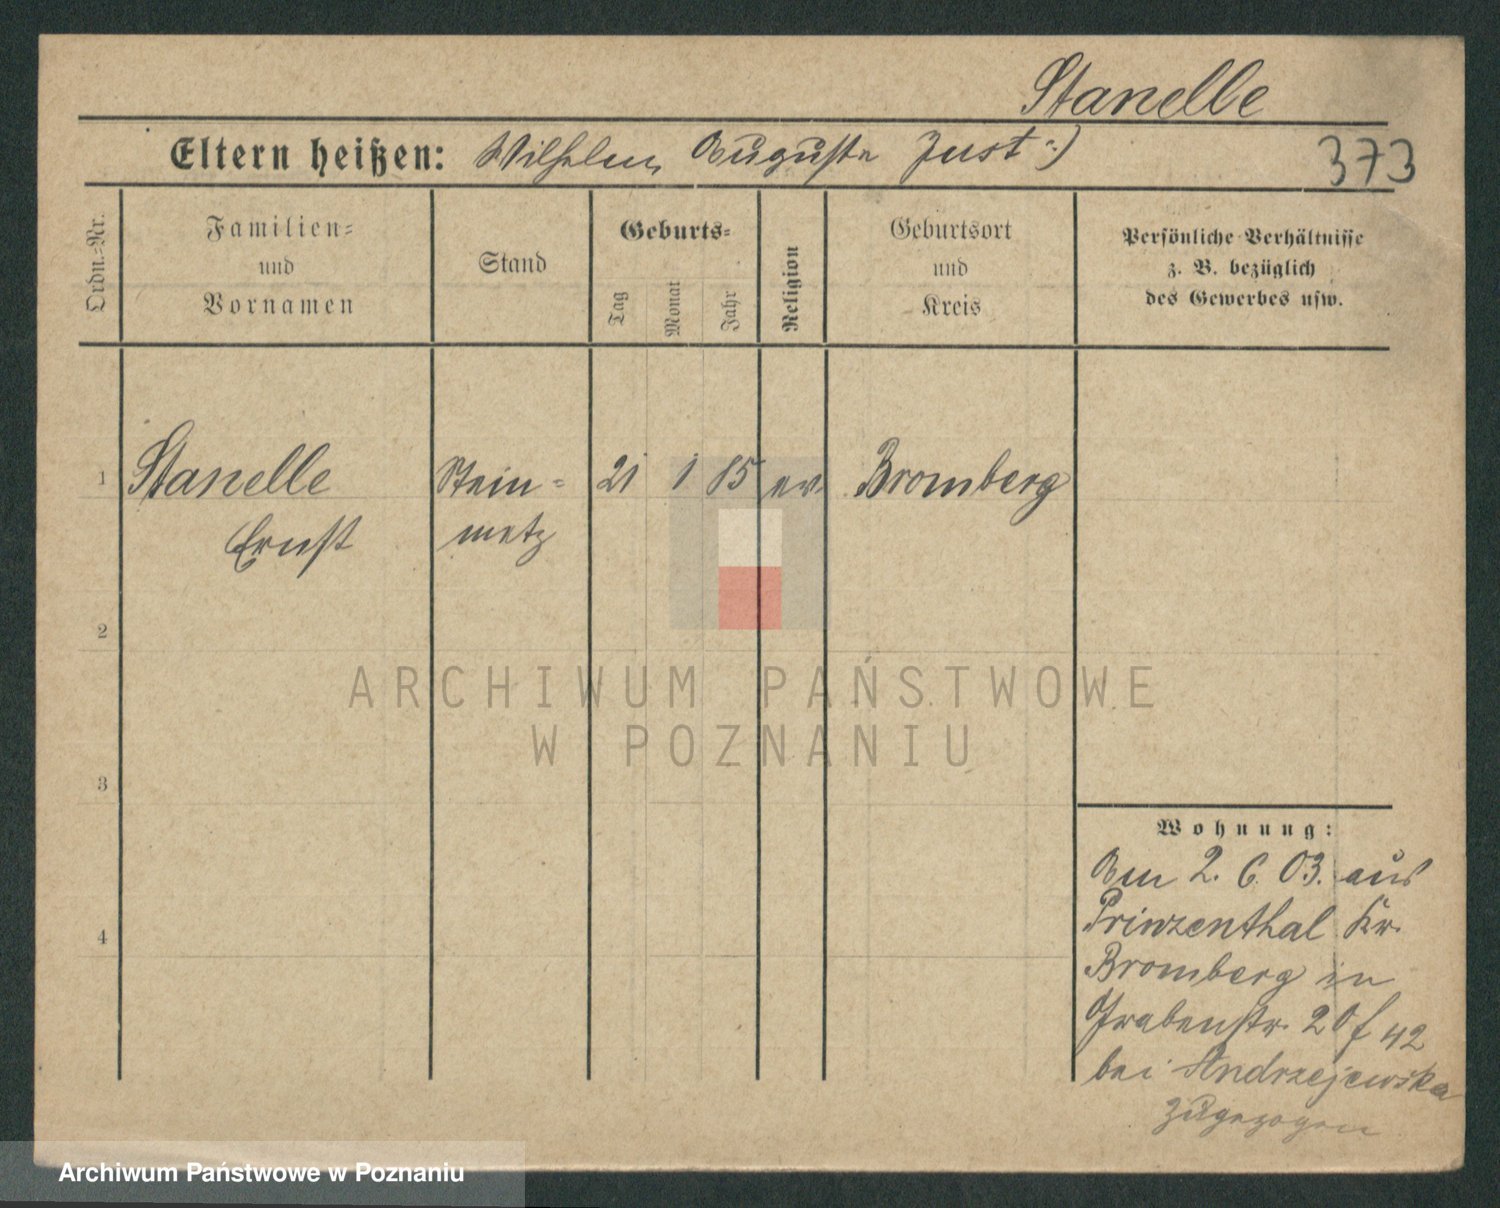 Stanelle
Eltern heißen: Wilhelm, Auguste Just :)
373
Ordn.-Nr.
Familien-
und
Vornamen
Stand
Geburts-
Tag
Monat
Jahr
Religion
Geburtsort
und
Kreis
Persönliche Verhältnisse
z. B. bezüglich
des Gewerbes usw.
1 Stanelle Stein- 21 1 85 ev. Bromberg
Ernst metz
2
ARCHIWUM PAŃSTWOWE
W POZNANIU
3
Wohnung:
Am 2. 6. 03. aus
Prinzenthal Kr.
Bromberg in
Grabenstr. 20 f 42
bei Andrzejewska
zugezogen
4
Archiwum Państwowe w Poznaniu